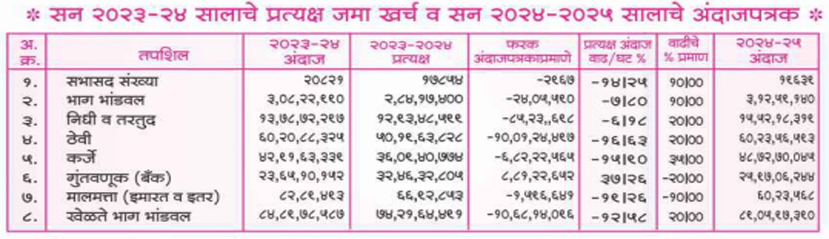 * सन २०२३-२४ सालाचे प्रत्यक्ष जमा खर्च व सन २०२४-२०२५ सालाचे अंदाजपत्रक *
अ. क्र. तपशिल २०२३-२४ अंदाज २०२३-२०२४ प्रत्यक्ष फरक अंदाजपत्रकाप्रमाणे प्रत्यक्ष अंदाज वाढ/घट % वाढीचे % प्रमाण २०२४-२५ अंदाज
१. सभासद संख्या २०८२१ १७८५४ -२९६७ -१४|२५ १०|०० १९६३९
२. भाग भांडवल ३,०८,२२,९९० २,८४,१७,४०० -२४,०५,५९० -७|८० १०|०० ३,१२,५९,१४०
३. निधी व तरतुद १३,७८,७२,२९७ १२,९३,४८,५९९ -८५,२३,,६९८ -६|१८ २०|०० १५,५२,१८,३१९
४. ठेवी ६०,२०,८८,३२५ ५०,१९,६३,८२८ -१०,०१,२४,४९७ -१६|६३ २०|०० ६०,२३,५६,५९३
५. कर्जे ४२,९१,६३,३३९ ३६,०९,४०,७७४ -६,८२,२२,५६५ -१५|९० ३५|०० ४८,७२,७०,०४५
६. गुंतवणूक (बँक) २३,६५,१०,१६२ ३२,४६,३२,८०५ ८,८१,२२,६४२ ३७|२६ -२०|०० २५,९७,०६,२४४
७. मालमत्ता (इमारत व इतर) ८२,८९,४९३ ६६,९२,८५३ -१,५९६,६४१ -१९|२६ -१०|०० ६०,२३,५६८
८. खेळते भाग भांडवल ८४,८९,७८,५८७ ७४,२१,६४,४९१ -१०,६८,१४,०९६ -१२|५८ २०|०० ८९,०५,९७,३९०